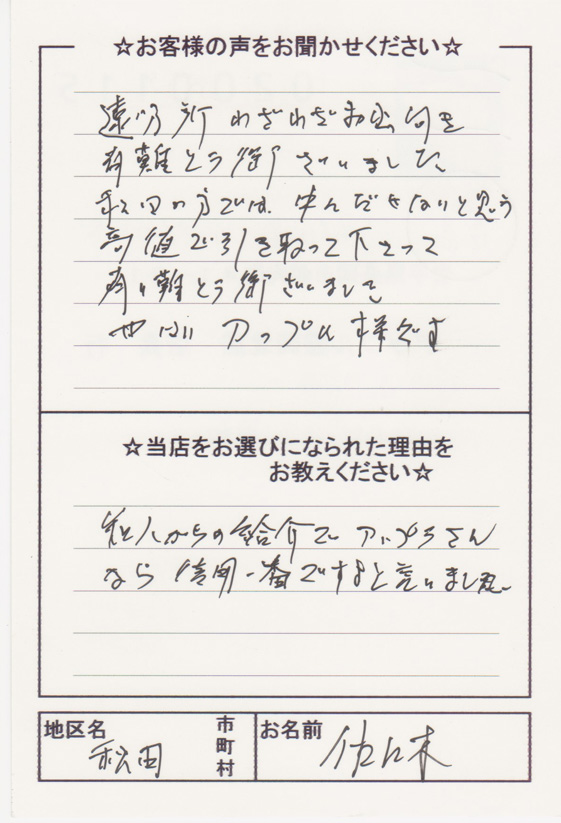 ☆お客様の声をお聞かせください☆
遠い所 わざわざお出向き
有難とう御ざいました
秋田の方では、中んだせないと思う
高値で引き取って下さって
有り難とう御ざいまして
やはり アップル様です
☆当店をお選びになられた理由を
お教えください☆
知人からの紹介で アップルさん
なら 信用一番ですよと言いました
地区名
秋田
市
町
村
お名前
佐々木